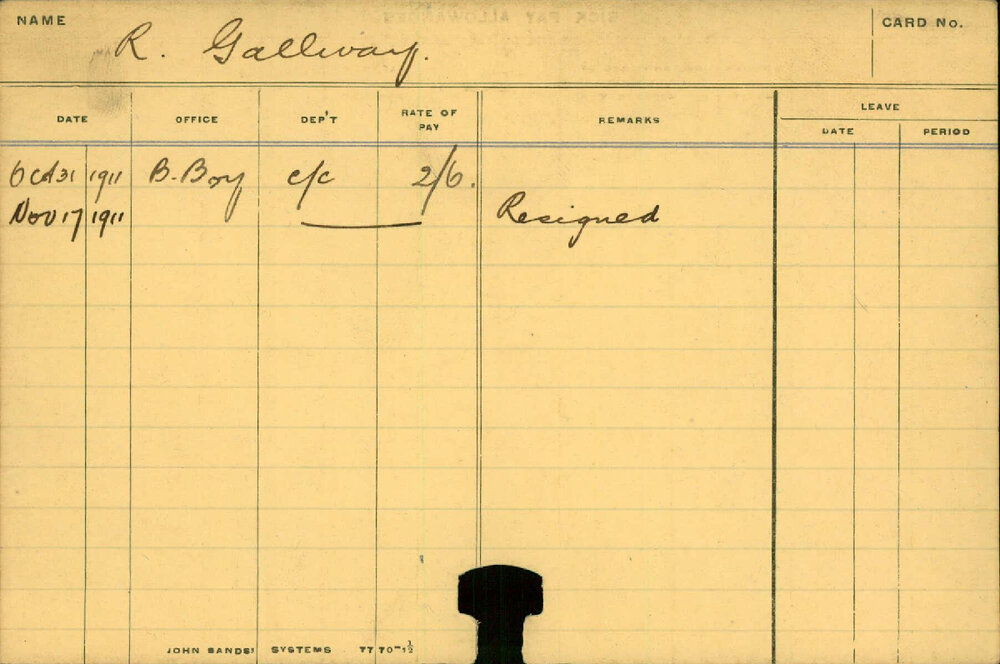 NAME R. Gallway. CARD No.
DATE OFFICE DEP'T RATE OF PAY REMARKS LEAVE
DATE PERIOD
Oct 31 1911 B. Boy c/c 2/6.
Nov 17 1911 Resigned
JOHN SANDS' SYSTEMS 7770-½